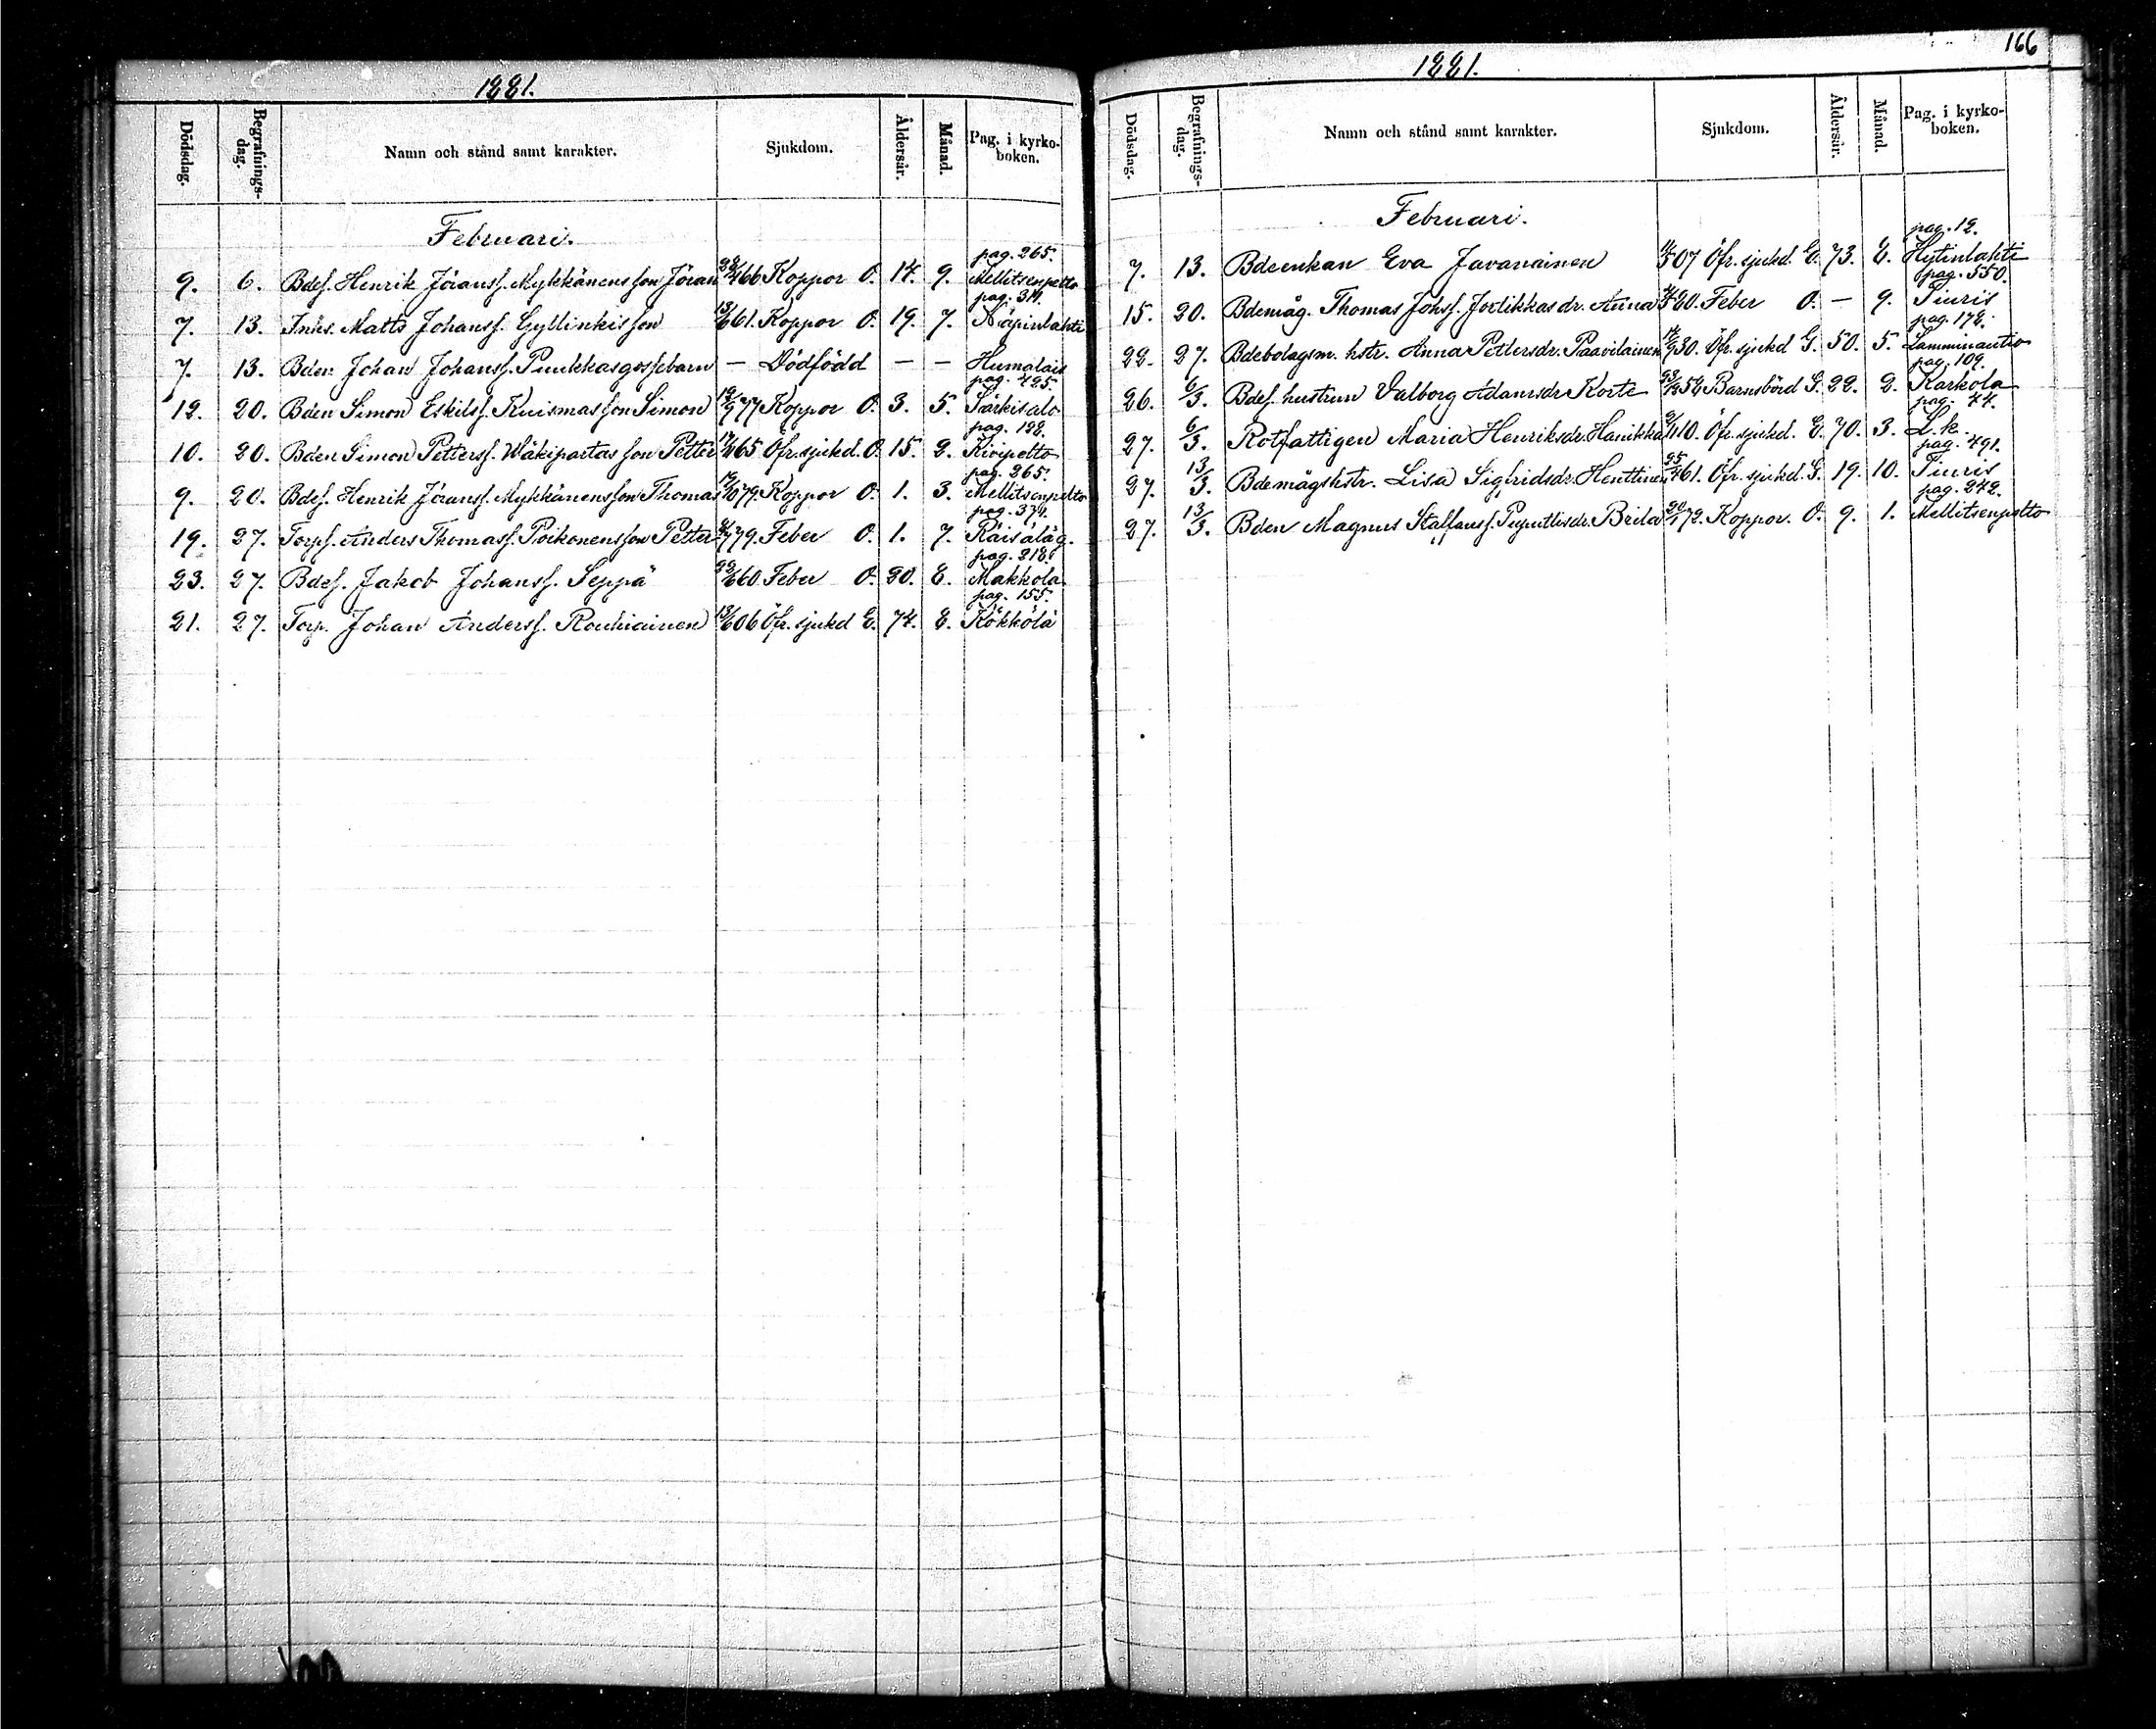 1881.
Dödsdag. Begrafningsdag. Namn och stånd samt karakter. Sjukdom. Åldersår. Månad. Pag. i kyrkoboken.
Februari.
pag. 265.
9. 6. Bdes. Henrik Jöranss. Mykkänens son Jöran 28/466 Koppor O. 14. 9. Mellitsenpelto
pag. 314.
7. 13. Inhs. Matts Johanss. Gyllinkis son 13/661. Koppor O. 19. 7. Näpinlahti
7. 13. Bden Johan Johanss. Puukkas gossebarn — Dödfödd — — Humalais
pag. 425.
12. 20. Bden Simon Eskilss. Kuismas son Simon 12/977 Koppor O. 3. 5. Särkisalo
pag. 198.
10. 20. Bden Simon Petterss. Wäkipartas son Petter 65 Öfr. sjukd. O. 15. 2. Kivipelto
pag. 265.
9. 20. Bdes. Henrik Jöranss. Mykkänens son Thomas 79. Koppor O. 1. 3. Mellitsenpelto
pag. 371.
19. 27. Torps. Anders Thomass. Poikonens son Petter 79. Feber O. 1. 7. Räisäläg.
pag. 218.
23. 27. Bdes. Jakob Johanss. Seppä 22/660 Feber O. 20. 8. Makkola
pag. 155.
21. 27. Torp. Johan Anderss. Rouhiainen 13/606 Öfr. sjukd E. 74. 8. Kökkölä
166
1881.
Dödsdag. Begrafningsdag. Namn och stånd samt karakter. Sjukdom. Åldersår. Månad. Pag. i kyrkoboken.
Februari.
pag. 12.
7. 13. Bdeenkan Eva Javanainen 07 Öfr. sjukd. E. 73. 8. Hytinlahti
pag. 550.
15. 20. Bdemåg. Thomas Johs. Jortikkas dr. Anna 80. Feber O. — 9. Tiuris
pag. 178.
22. 27. Bdebolagsm. hstr. Anna Pettersdr. Paavilainen 30. Öfr. sjukd G. 50. 5. Lamminautio
pag. 109.
26. 6/3. Bdes. hustrun Valborg Adamsdr Korte 58 Barnsbörd G. 22. 2. Karkola
pag. 44.
27. 6/3. Rotfattigen Maria Henriksdr. Hanikka 10. Öfr. sjukd. E. 70. 3. L. k.
pag. 491.
27. 13/3. Bdemågshstr. Lisa Sigfridsdr. Henttinen 25/461. Öfr. sjukd. G. 19. 10. Tiuris
pag. 242.
27. 13/3. Bden Magnus Staffanss. Puputtis dr. Brita 72. Koppor. O. 9. 1. Mellitsenpelto